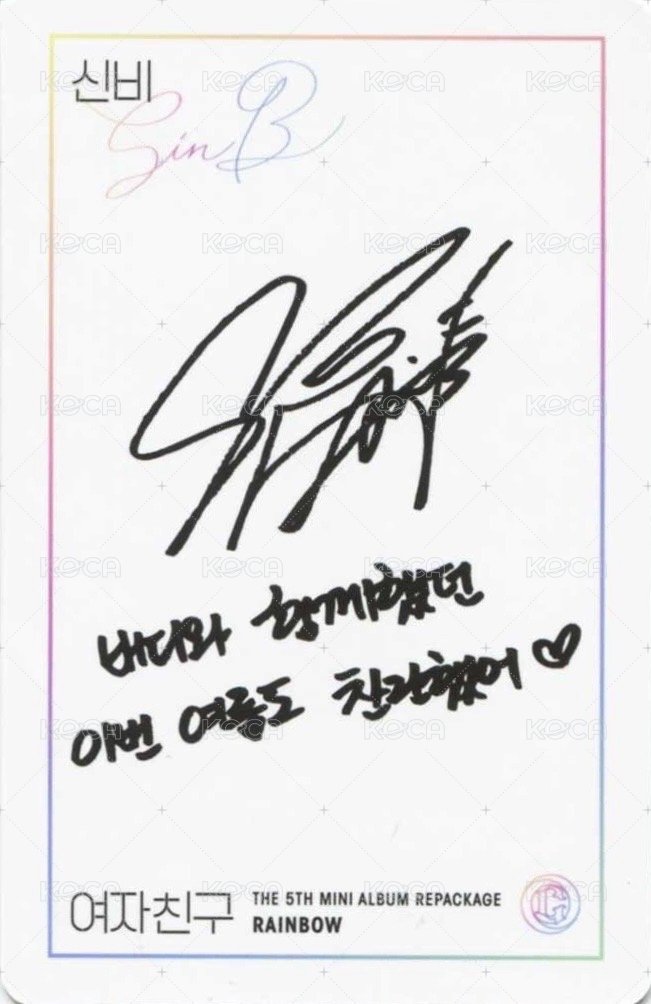 신비
SinB
버디와 함께했던
이번 여름도 찬란했어♡
여자친구 THE 5TH MINI ALBUM REPACKAGE
RAINBOW
G
KOCA